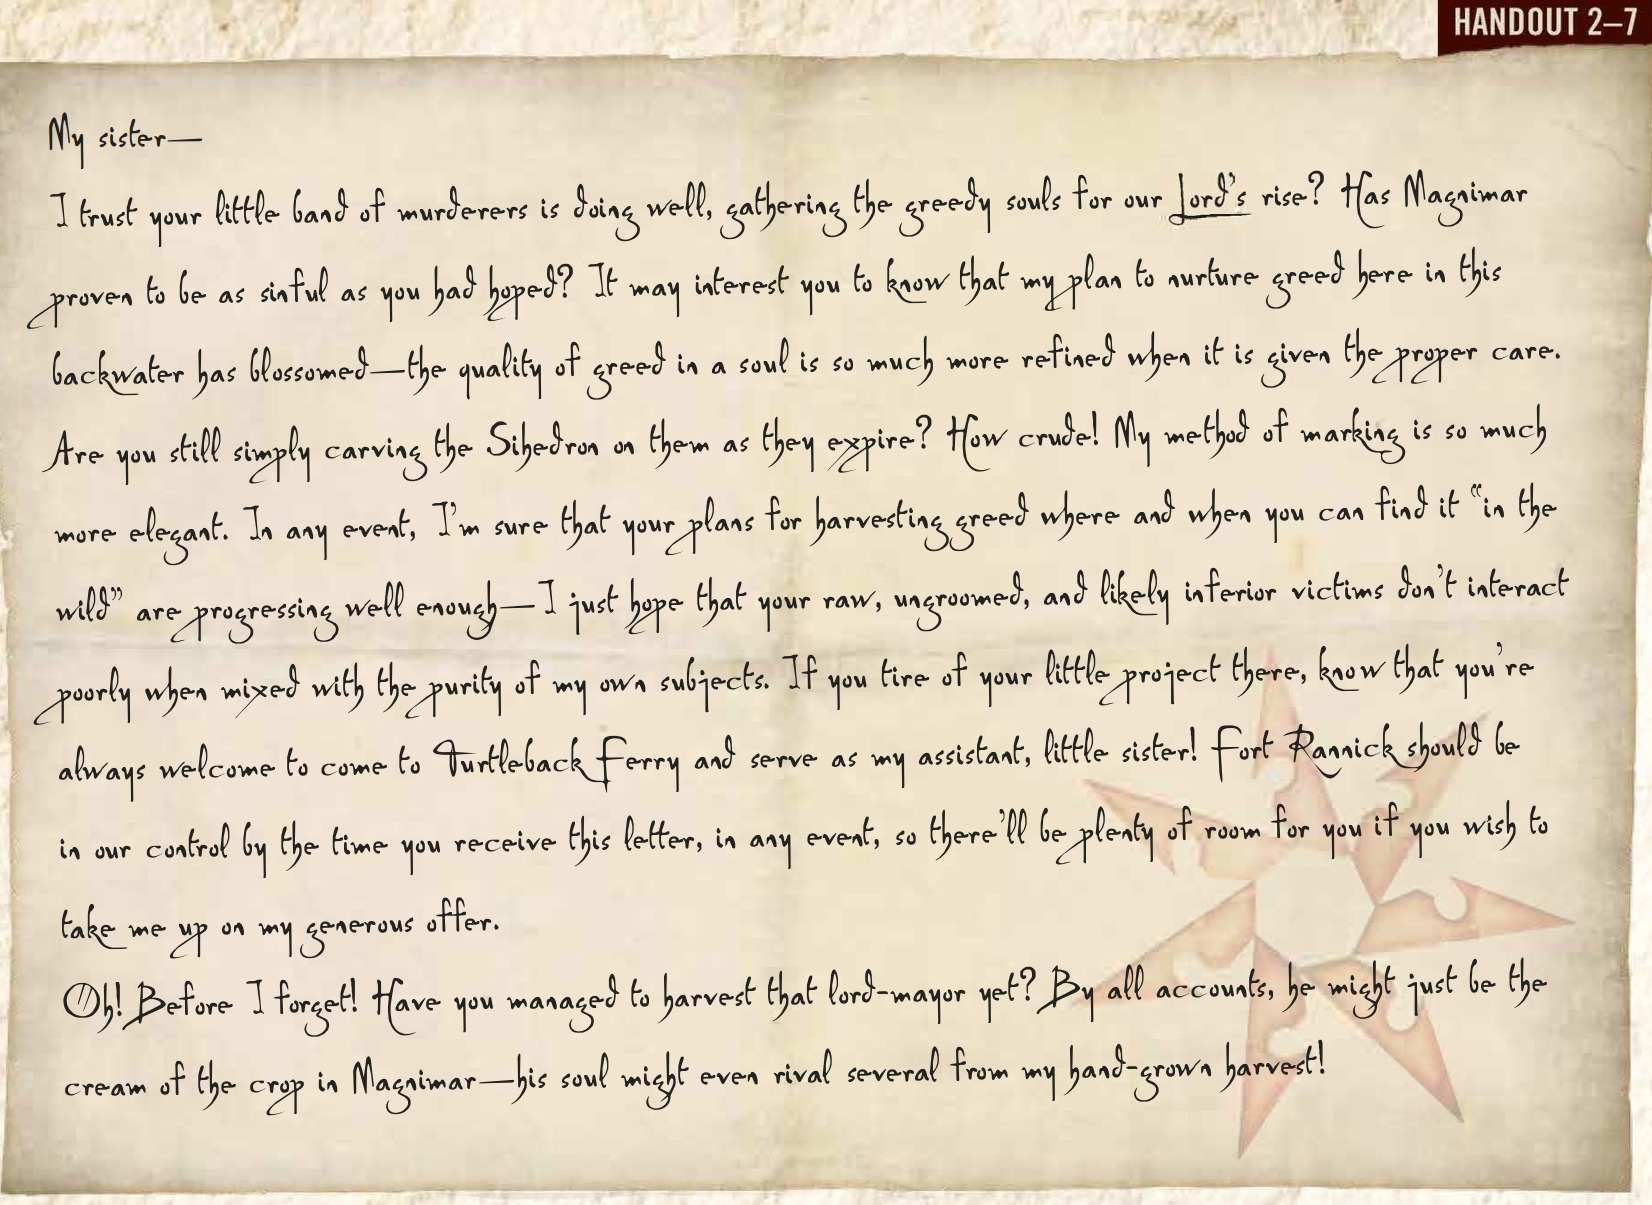 HANDOUT 2–7
My sister—
I trust your little band of murderers is doing well, gathering the greedy souls for our Lord's rise? Has Magnimar
proven to be as sinful as you had hoped? It may interest you to know that my plan to nurture greed here in this
backwater has blossomed—the quality of greed in a soul is so much more refined when it is given the proper care.
Are you still simply carving the Sihedron on them as they expire? How crude! My method of marking is so much
more elegant. In any event, I'm sure that your plans for harvesting greed where and when you can find it “in the
wild” are progressing well enough—I just hope that your raw, ungroomed, and likely inferior victims don't interact
poorly when mixed with the purity of my own subjects. If you tire of your little project there, know that you're
always welcome to come to Turtleback Ferry and serve as my assistant, little sister! Fort Rannick should be
in our control by the time you receive this letter, in any event, so there'll be plenty of room for you if you wish to
take me up on my generous offer.
Oh! Before I forget! Have you managed to harvest that lord-mayor yet? By all accounts, he might just be the
cream of the crop in Magnimar—his soul might even rival several from my hand-grown harvest!